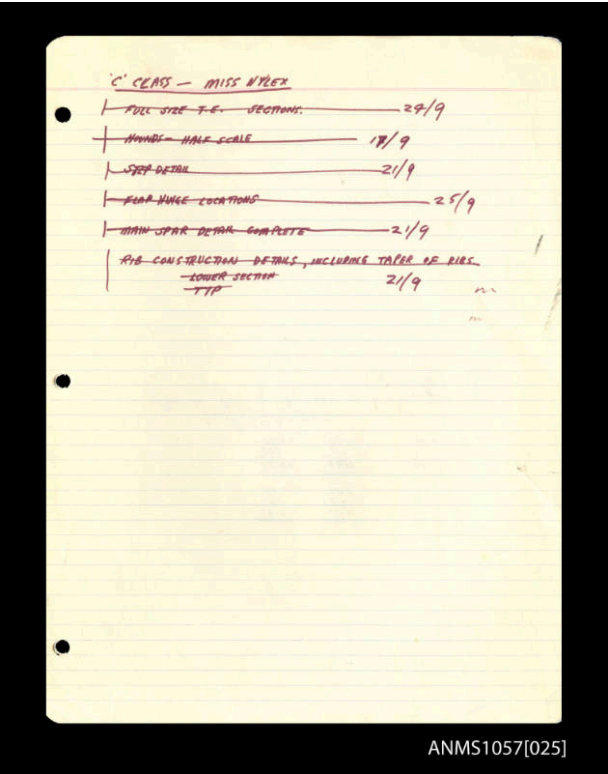 'C' CLASS — MISS NYLEX
FULL SIZE T.E. SECTIONS. 27/9
HOUNDS - HALF SCALE 17/9
STEP DETAIL 21/9
FLAP HINGE LOCATIONS 25/9
MAIN SPAR DETAIL COMPLETE 21/9
RIB CONSTRUCTION DETAILS, INCLUDING TAPER OF RIBS.
LOWER SECTION 21/9
TYP
ANMS1057[025]